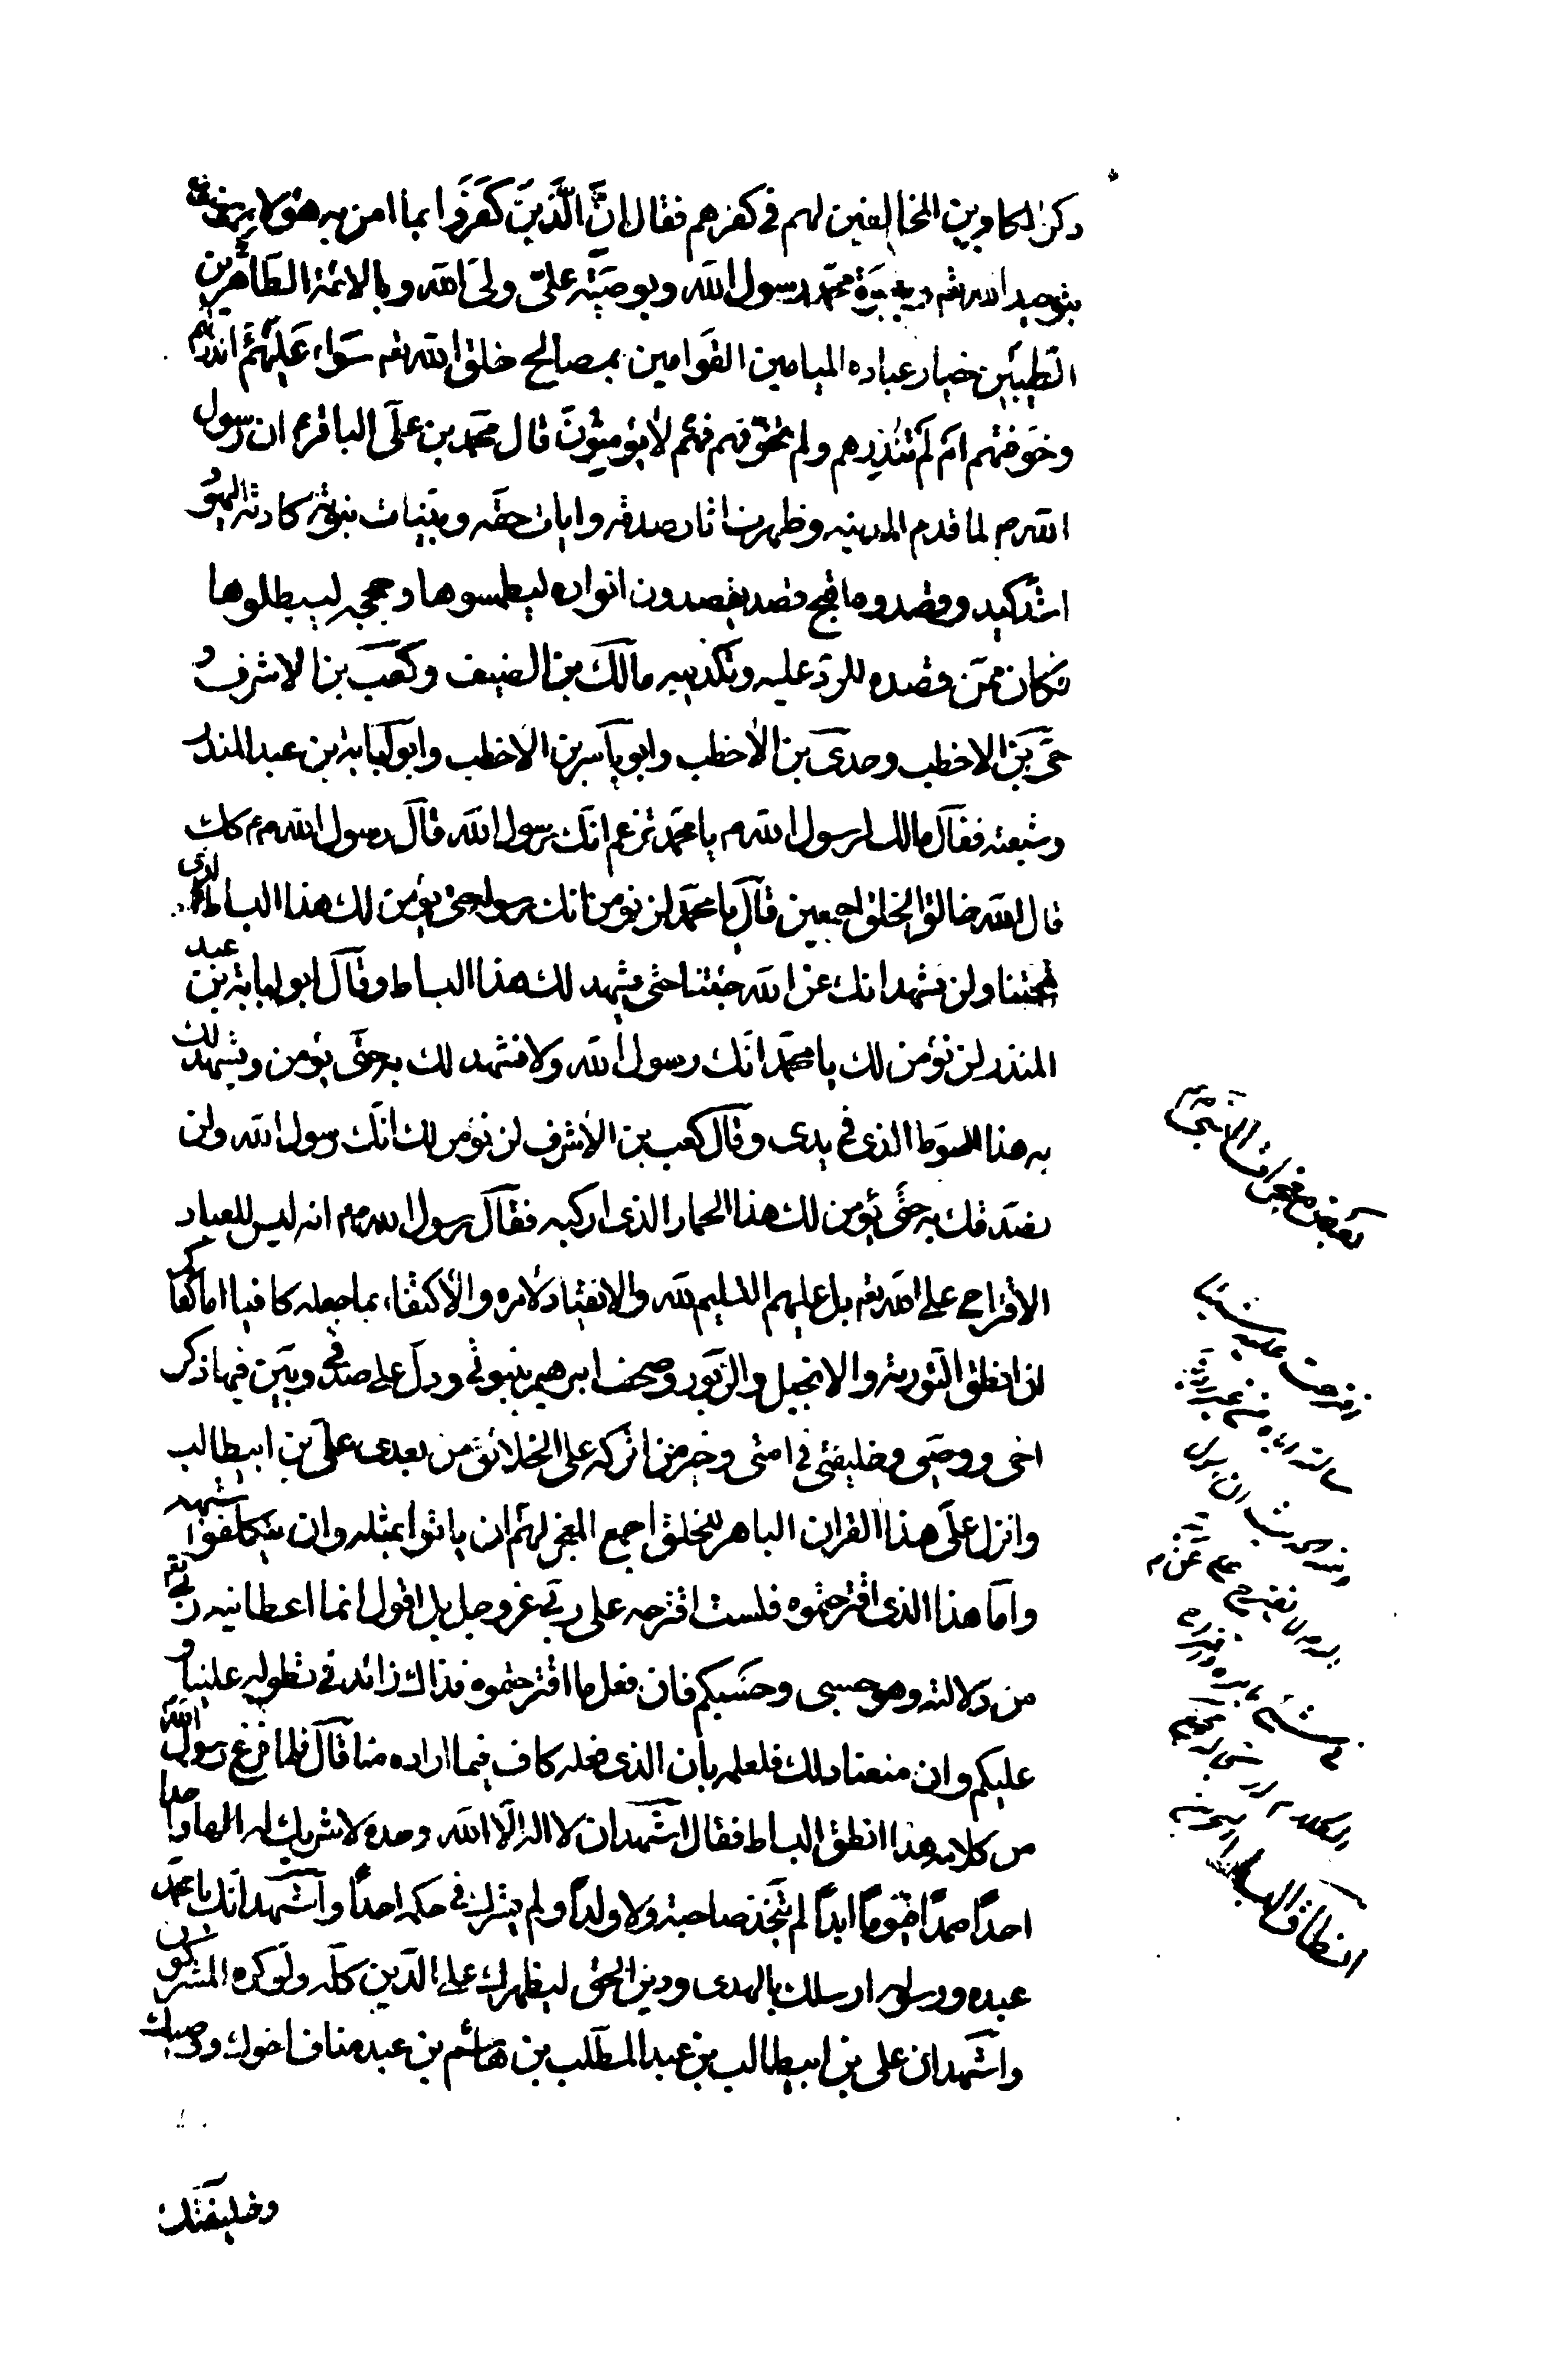 ذكر الكافرين المخالفين لهم في كفرهم فقال انّ الّذين كفروا بما امن به هؤلاء المؤمنون
بتوحيد الله تعه وبنبوة محمّد رسول الله وبوصيّه عليّ وليّ الله وبالائمة الطّاهرين
الطّيبين خيار عباده الميامين القوامين بمصالح خلق الله تعه سَواء عَليهم ءانذرتهم
وخوفتهم ام لم تنذرهم ولم تخوّفهم فهم لا يؤمنون قال محمّد بن عليّ الباقرع ان رسول
اللهص لما قدم المدينه وظهرت اثار صدقه وايات حقه وبيّنات نبوته كادته اليهود
اشد كيد وقصدوه اقبح قصد يقصدون انواره ليطمسوها وحججه ليبطلوها
فكان ممّن قصده للردّ عليه وتكذيبه مالك بن الضيف وكعب بن الاشرف و
حيّ بن الاخطب وحدى بن الاخطب وابو ياسر بن الاخطب وابو لبابة بن عبد المنذر
وشيعته فقال مالك لرسول اللهص يا محمّد تزعم انّك رسول الله قال رسول اللهص كك
قال الله خالق الخلق اجمعين قال يا محمّد لن نؤمن انك رسوله حتى يؤمن لك هذا البساط الذي
تحتنا ولن نشهد انك عن الله جئتنا حتى يشهد لك هذا البساط وقال ابو لبابة بن عبد
المنذر لن نؤمن لك يا محمّد انّك رسول الله ولا نشهد لك به حتّى يؤمن ويشهد لك
به هذا السّوط الذي في يدى وقال كعب بن الاشرف لن نؤمن لك انّك رسول الله ولن
نصدقك به حتّى يؤمن لك هذا الحمار الذي اركبه فقال رسول اللهص انه ليس للعباد
الاقتراح على الله تعه بل عليهم التسليم لله والانقياد لامره والاكتفاء بما جعله كافيا اما كفاكم
ان انطق التورية والانجيل والزبور وصحف ابرهيم بنبوتي ودلّ على صدقي وبيّن فيها ذكر
اخي ووصيي وخليفتي في امتى وخير من اتركه على الخلائق من بعدى عليّ بن ابيطالب
وانزل عليّ هذا القران الباهر للخلق اجمع المعجز لهم ان ياتوا بمثله وان يتكلفوا شبهه
وامّا هذا الذي اقترحتموه فلست اقترحه على ربّي عز وجل بل اقول انما اعطانيه ربّي تعه
من دلالته وهو حسبي وحسبكم فان فعل ما اقترحتموه فذاك زائد في تطوله علينا و
عليكم وان منعنا ذلك فلعلمه بان الذي فعله كاف فيما اراده منا قال فلما فرغ رسول الله
من كلامه هذا انطق البساط فقال اشهد ان لا اله الا الله وحده لا شريك له الها واحدا
احداً صمداً قيّوماً ابداً لم يتّخذ صاحبة ولا ولداً ولم يشرك في حكمه احداً واشهد انّك يا محمّد
عبده ورسوله ارسلك بالهدى ودين الحق ليظهرك على الدّين كلّه ولو كره المشركون
واشهد ان علي بن ابيطالب بن عبد المطّلب بن هاشم بن عبد مناف اخوك ووصيك
وخليفتك
انطاق البساط